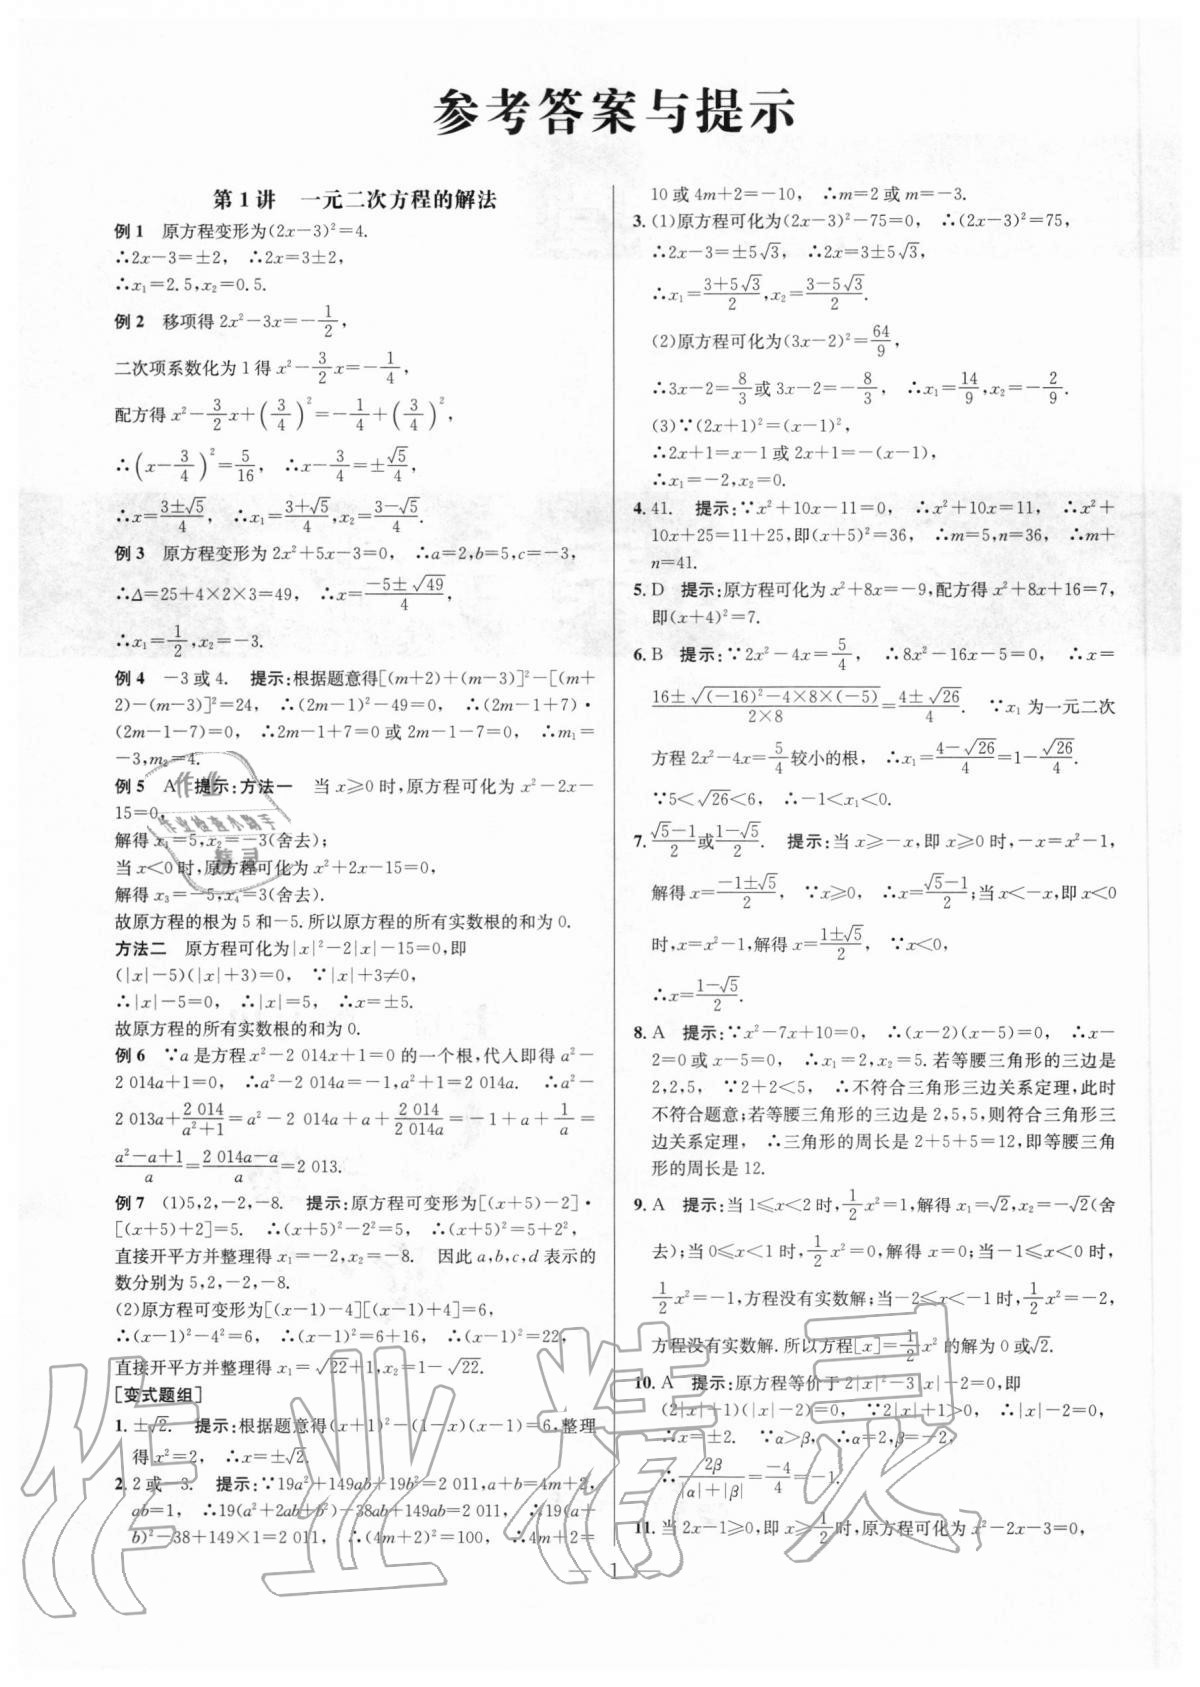 参考答案与提示
第1讲　一元二次方程的解法
例1　原方程变形为(2x－3)²＝4.
∴2x－3＝±2,　∴2x＝3±2,
∴x₁＝2.5,x₂＝0.5.
例2　移项得2x²－3x＝－1/2,
二次项系数化为1得x²－3/2x＝－1/4,
配方得x²－3/2x＋(3/4)²＝－1/4＋(3/4)²,
∴(x－3/4)²＝5/16,　∴x－3/4＝±√5/4,
∴x＝(3±√5)/4,　∴x₁＝(3＋√5)/4,x₂＝(3－√5)/4.
例3　原方程变形为2x²＋5x－3＝0,　∴a＝2,b＝5,c＝－3,
∴Δ＝25＋4×2×3＝49,　∴x＝(－5±√49)/4,
∴x₁＝1/2,x₂＝－3.
例4　－3或4.　提示:根据题意得[(m＋2)＋(m－3)]²－[(m＋
2)－(m－3)]²＝24,　∴(2m－1)²－49＝0,　∴(2m－1＋7)·
(2m－1－7)＝0,　∴2m－1＋7＝0或2m－1－7＝0,　∴m₁＝
－3,m₂＝4.
例5　A　提示:方法一　当x≥0时,原方程可化为x²－2x－
15＝0,
解得x₁＝5,x₂＝－3(舍去);
当x＜0时,原方程可化为x²＋2x－15＝0,
解得x₃＝－5,x₄＝3(舍去).
故原方程的根为5和－5.所以原方程的所有实数根的和为0.
方法二　原方程可化为|x|²－2|x|－15＝0,即
(|x|－5)(|x|＋3)＝0,　∵|x|＋3≠0,
∴|x|－5＝0,　∴|x|＝5,　∴x＝±5.
故原方程的所有实数根的和为0.
例6　∵a是方程x²－2 014x＋1＝0的一个根,代人即得a²－
2 014a＋1＝0,　∴a²－2 014a＝－1,a²＋1＝2 014a.　∴a²－
2 013a＋2 014/(a²＋1)＝a²－2 014a＋a＋2 014/2 014a＝－1＋a＋1/a＝
(a²－a＋1)/a＝(2 014a－a)/a＝2 013.
例7　(1)5,2,－2,－8.　提示:原方程可变形为[(x＋5)－2]·
[(x＋5)＋2]＝5.　∴(x＋5)²－2²＝5,　∴(x＋5)²＝5＋2²,
直接开平方并整理得x₁＝－2,x₂＝－8.　因此a,b,c,d表示的
数分别为5,2,－2,－8.
(2)原方程可变形为[(x－1)－4][(x－1)＋4]＝6,
∴(x－1)²－4²＝6,　∴(x－1)²＝6＋16,　∴(x－1)²＝22,
直接开平方并整理得x₁＝√22＋1,x₂＝1－√22.
[变式题组]
1. ±√2.　提示:根据题意得(x＋1)²－(1－x)(x－1)＝6,整理
得x²＝2,　∴x＝±√2.
2. 2或－3.　提示:∵19a²＋149ab＋19b²＝2 011,a＋b＝4m＋2,
ab＝1,　∴19(a²＋2ab＋b²)－38ab＋149ab＝2 011,　∴19(a＋
b)²－38＋149×1＝2 011,　∴(4m＋2)²＝100,　∴4m＋2＝
10或4m＋2＝－10,　∴m＝2或m＝－3.
3. (1)原方程可化为(2x－3)²－75＝0,　∴(2x－3)²＝75,
∴2x－3＝±5√3,　∴2x＝3±5√3,
∴x₁＝(3＋5√3)/2,x₂＝(3－5√3)/2.
(2)原方程可化为(3x－2)²＝64/9,
∴3x－2＝8/3或3x－2＝－8/3,　∴x₁＝14/9,x₂＝－2/9.
(3)∵(2x＋1)²＝(x－1)²,
∴2x＋1＝x－1或2x＋1＝－(x－1),
∴x₁＝－2,x₂＝0.
4. 41.　提示:∵x²＋10x－11＝0,　∴x²＋10x＝11,　∴x²＋
10x＋25＝11＋25,即(x＋5)²＝36,　∴m＝5,n＝36,　∴m＋
n＝41.
5. D　提示:原方程可化为x²＋8x＝－9,配方得x²＋8x＋16＝7,
即(x＋4)²＝7.
6. B　提示:∵2x²－4x＝5/4,　∴8x²－16x－5＝0,　∴x＝
(16±√((－16)²－4×8×(－5)))/(2×8)＝(4±√26)/4.　∵x₁为一元二次
方程2x²－4x＝5/4较小的根,　∴x₁＝(4－√26)/4＝1－√26/4.
∵5＜√26＜6,　∴－1＜x₁＜0.
7. (√5－1)/2或(1－√5)/2.　提示:当x≥－x,即x≥0时,－x＝x²－1,
解得x＝(－1±√5)/2,　∵x≥0,　∴x＝(√5－1)/2;当x＜－x,即x＜0
时,x＝x²－1,解得x＝(1±√5)/2,　∵x＜0,
∴x＝(1－√5)/2.
8. A　提示:∵x²－7x＋10＝0,　∴(x－2)(x－5)＝0,　∴x－
2＝0或x－5＝0,　∴x₁＝2,x₂＝5.若等腰三角形的三边是
2,2,5,　∵2＋2＜5,　∴不符合三角形三边关系定理,此时
不符合题意;若等腰三角形的三边是2,5,5,则符合三角形三
边关系定理,　∴三角形的周长是2＋5＋5＝12,即等腰三角
形的周长是12.
9. A　提示:当1≤x＜2时,1/2x²＝1,解得x₁＝√2,x₂＝－√2(舍
去);当0≤x＜1时,1/2x²＝0,解得x＝0;当－1≤x＜0时,
1/2x²＝－1,方程没有实数解;当－2≤x＜－1时,1/2x²＝－2,
方程没有实数解.所以方程[x]＝1/2x²的解为0或√2.
10. A　提示:原方程等价于2|x|²－3|x|－2＝0,即
(2|x|＋1)(|x|－2)＝0,　∵2|x|＋1＞0,　∴|x|－2＝0,
∴x＝±2.　∵α＞β,　∴α＝2,β＝－2,
∴2β/(|α|＋|β|)＝－4/4＝－1.
11. 当2x－1≥0,即x≥1/2时,原方程可化为x²－2x－3＝0,
— 1 —
作业
作业检查小助手
精灵
作业精灵